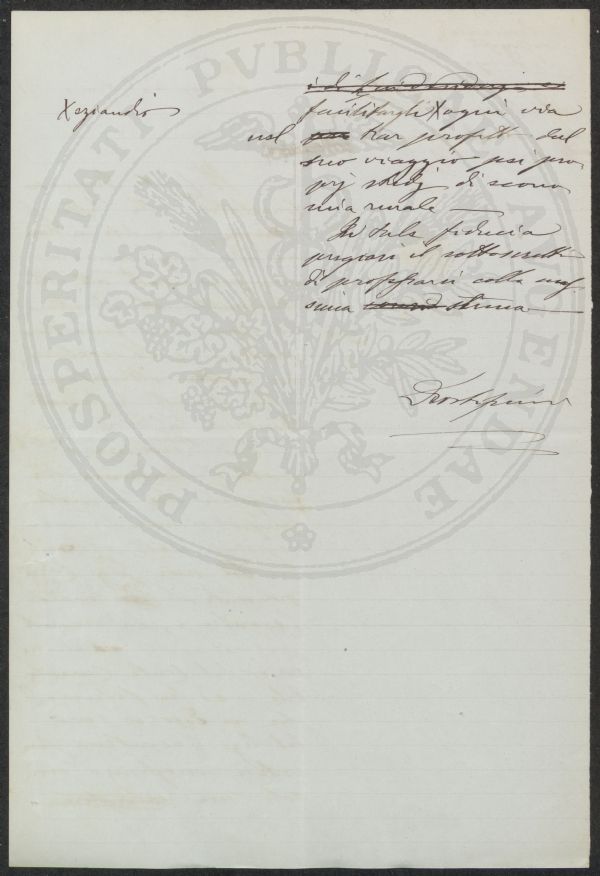 X eziandio
facilitargli X ogni via
nel trar profitto dal
suo viaggio pei pro-
prj studj di econo-
mia rurale
In tale fiducia
pregiasi il sottoscritto
di professarsi colla mas-
sima stima
PROSPERITATI PVBLICAE AVGENDAE